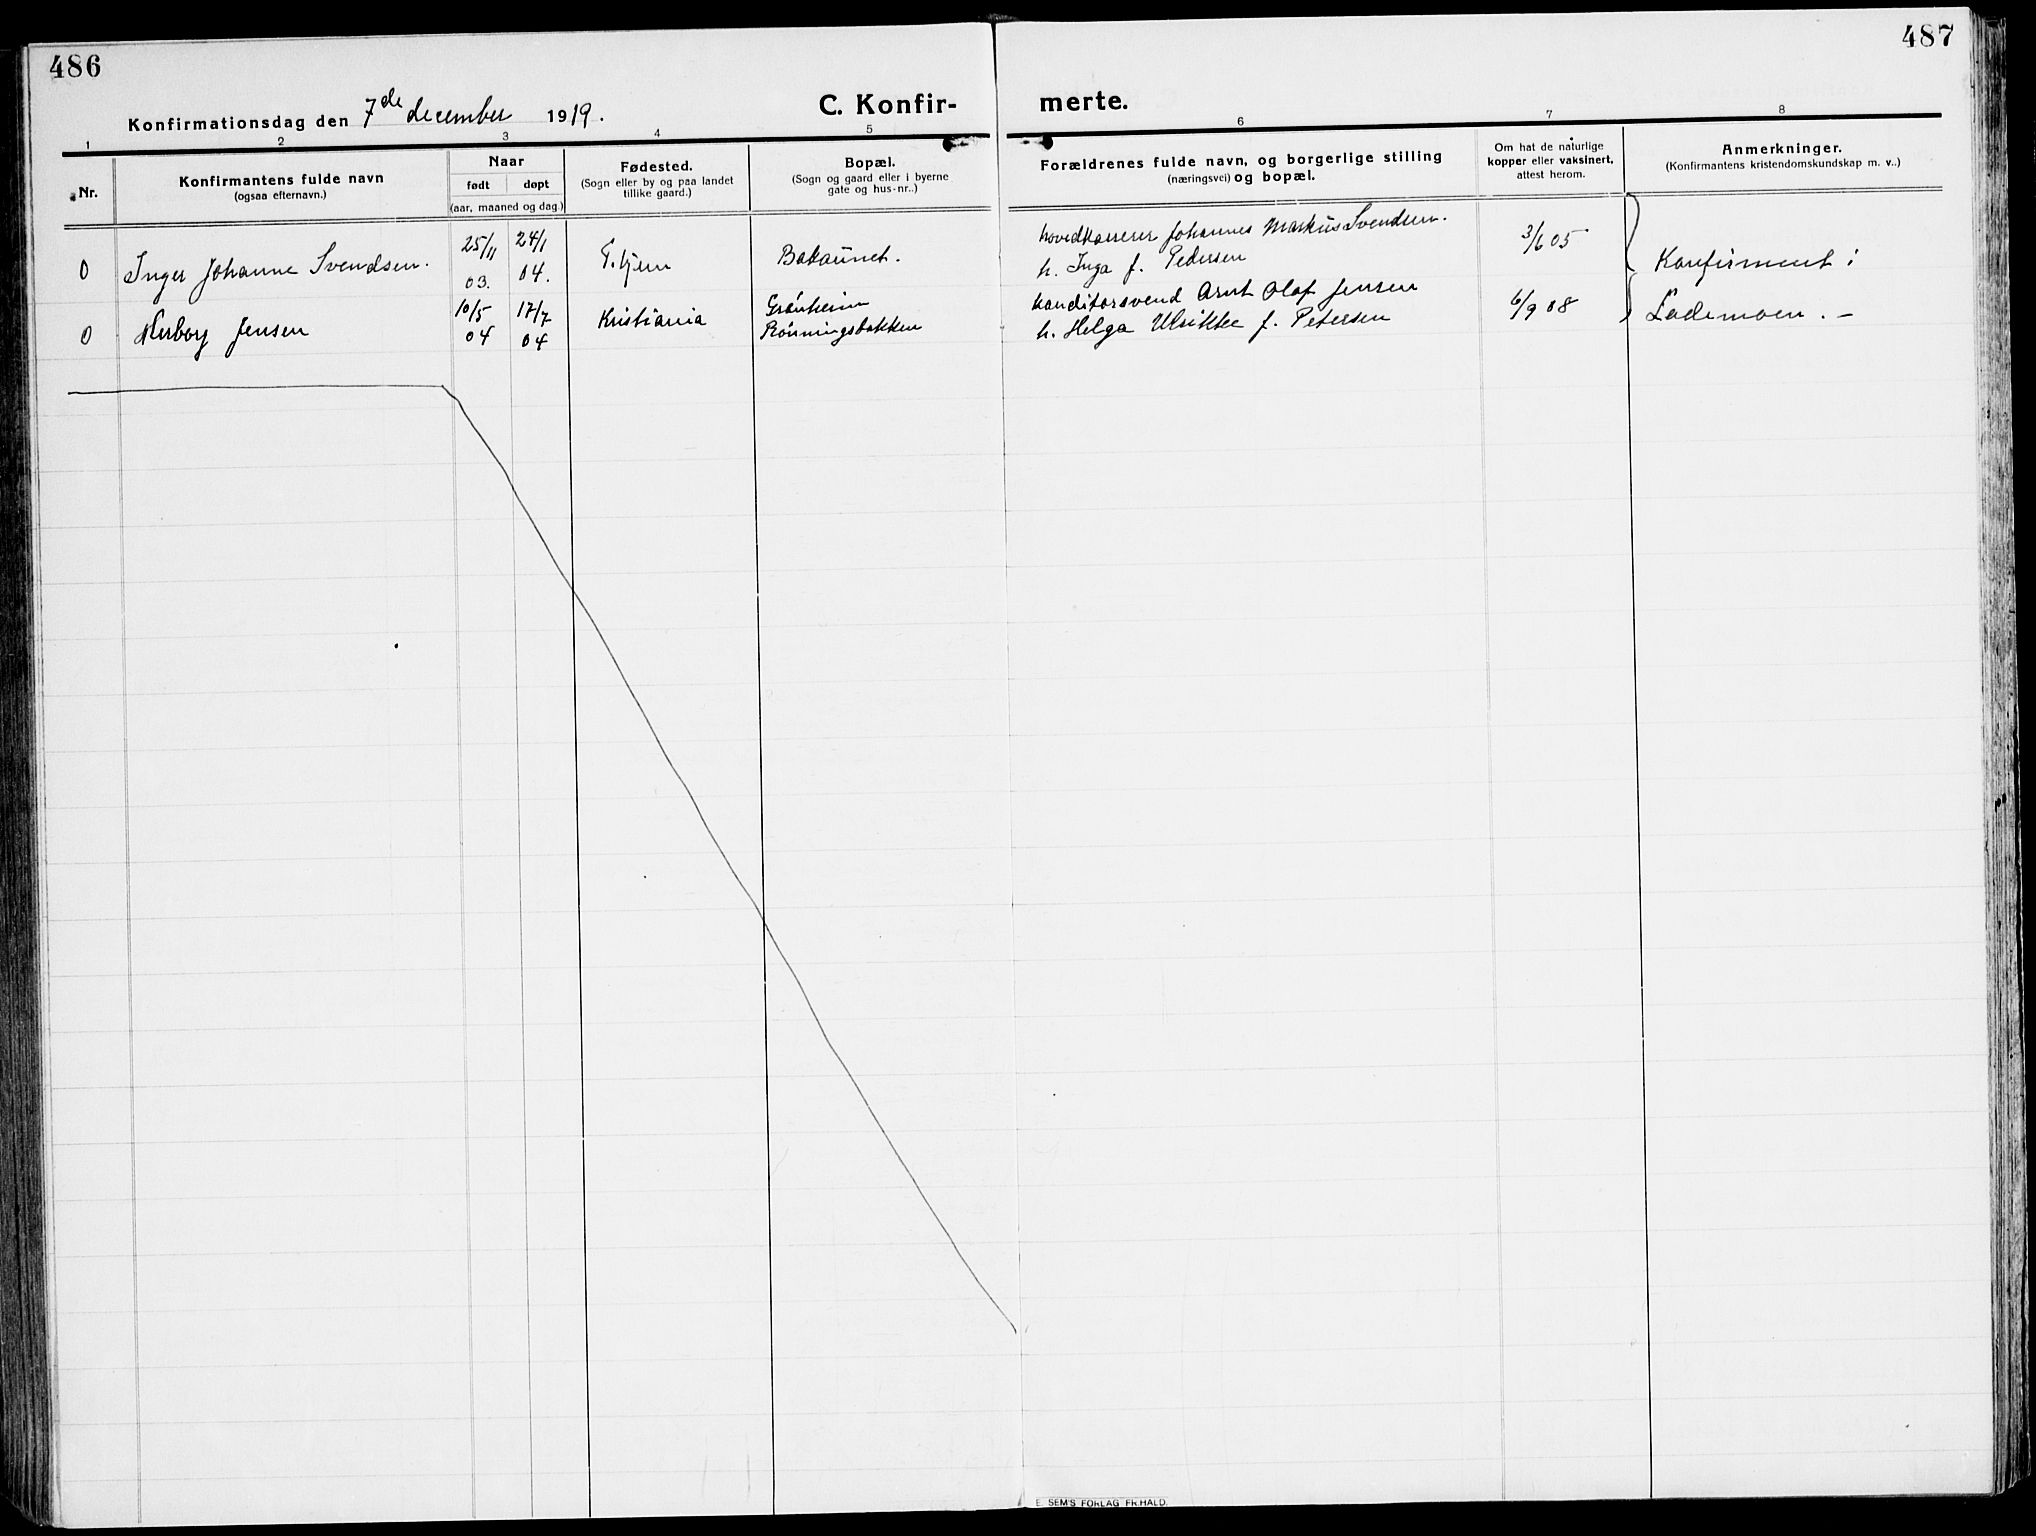 486
487
Konfirmationsdag den 7de december 1919.
C. Konfir-
merte.
1
2
3
4
5
6
7
8
Nr.
Konfirmantens fulde navn
(ogsaa efternavn.)
Naar
født
døpt
(aar, maaned og dag.)
Fødested.
(Sogn eller by og paa landet
tillike gaard.)
Bopæl.
(Sogn og gaard eller i byerne
gate og hus-nr..)
Forældrenes fulde navn, og borgerlige stilling
(næringsvei) og bopæl.
Om hat de naturlige
kopper eller vaksinert,
attest herom.
Anmerkninger.
(Konfirmantens kristendomskundskap m. v..)
0
Inger Johanne Svendsen.
25/11
03.
24/1
04.
T.hjem
Bakaunet.
hovedkasserer Johannes Markus Svendsen.
h. Inga f. Pedersen
3/6 05
Konfirment i
Lademoen. –
0
Herborg Jensen
10/5
04
17/7
04
Kristiania
Grønheim
Rønningsbakken
konditorsvend Arnt Olaf Jensen
h. Helga Ulrikke f. Petersen
6/9 08
E. SEM'S FORLAG FR.HALD.